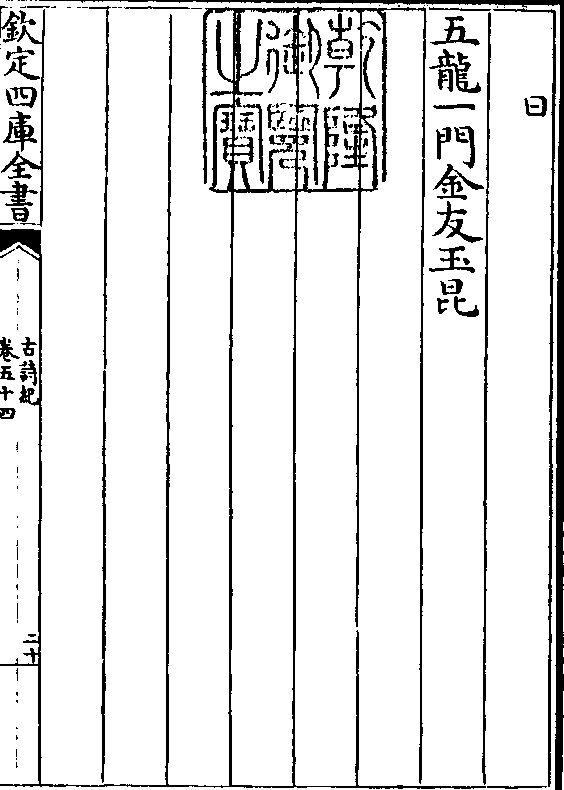 曰
五龍一門金友玉昆
乾隆御覽之寶
欽定四庫全書
古詩紀
卷五十四
二十